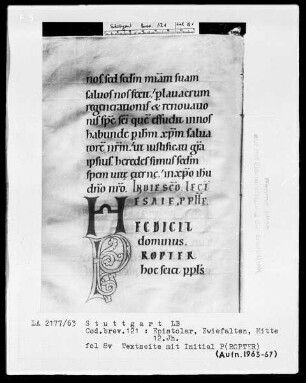 nos. sed scdm miam suam
saluos nos fecit. p lauacrum
regenerationis & renoua
nis sps sci que effudit in nos
habunde p ihm xpm salua
torē nrm. ut iustificati gra
ipsius heredes simus scdm
spem uite eterne. in xpo ihu
dno nro. IN DIE SCO LECT
ESAIE PPHE
HEC DICIT
dominus.
PROPTER
hoc sciet ppls
LA 2177/63 Stuttgart LB
Cod.brev.121 : Epistolar, Zwiefalten, Mitte
12.Jh.
fol 8v Textseite mit Initial P(ROPTER)
(Aufn.1963-67)